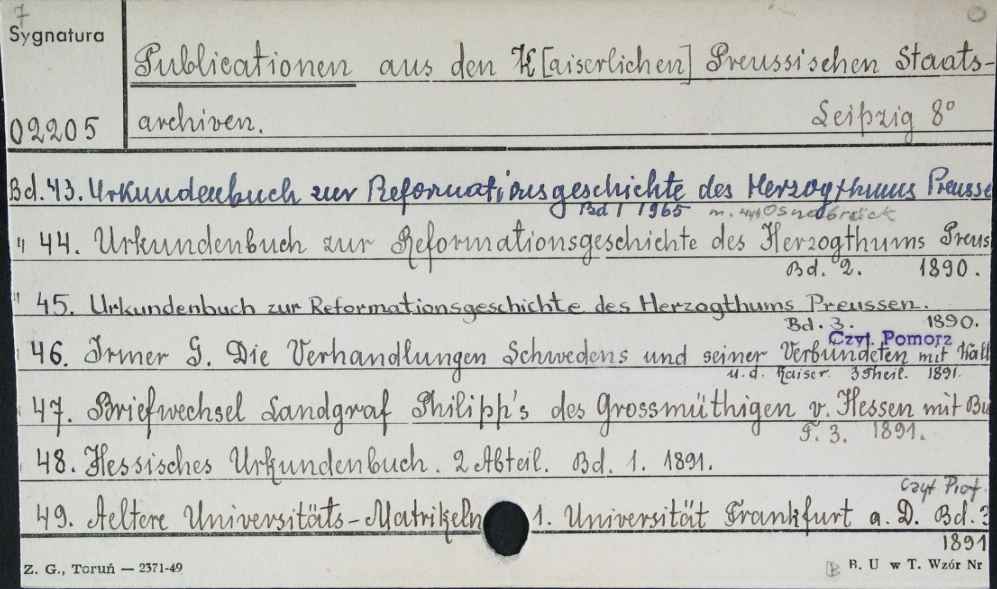 7
Sygnatura
Publicationen aus den K[aiserlichen] Preussischen Staats-
02205 archiven. Leipzig 8°
Bd. 43. Urkundenbuch zur Reformationsgeschichte des Herzogthums Preusse
Bd 1 1965 Osnabrück
" 44. Urkundenbuch zur Reformationsgeschichte des Herzogthums Preus
Bd. 2. 1890.
" 45. Urkundenbuch zur Reformationsgeschichte des Herzogthums Preussen.
Bd. 3. 1890.
Czyt. Pomorz
46. Irmer G. Die Verhandlungen Schwedens und seiner Verbündeten mit Wall
u. d. Kaiser. 3 Theil. 1891.
47. Briefwechsel Landgraf Philipp's des Grossmüthigen v. Hessen mit Bu
T. 3. 1891.
48. Hessisches Urkundenbuch. 2 Abteil. Bd. 1. 1891.
Czyt Prof.
49. Aeltere Universitäts-Matrikeln 1. Universität Frankfurt a. O. Bd.
1891
Z. G., Toruń — 2371-49 B. U w T. Wzór Nr